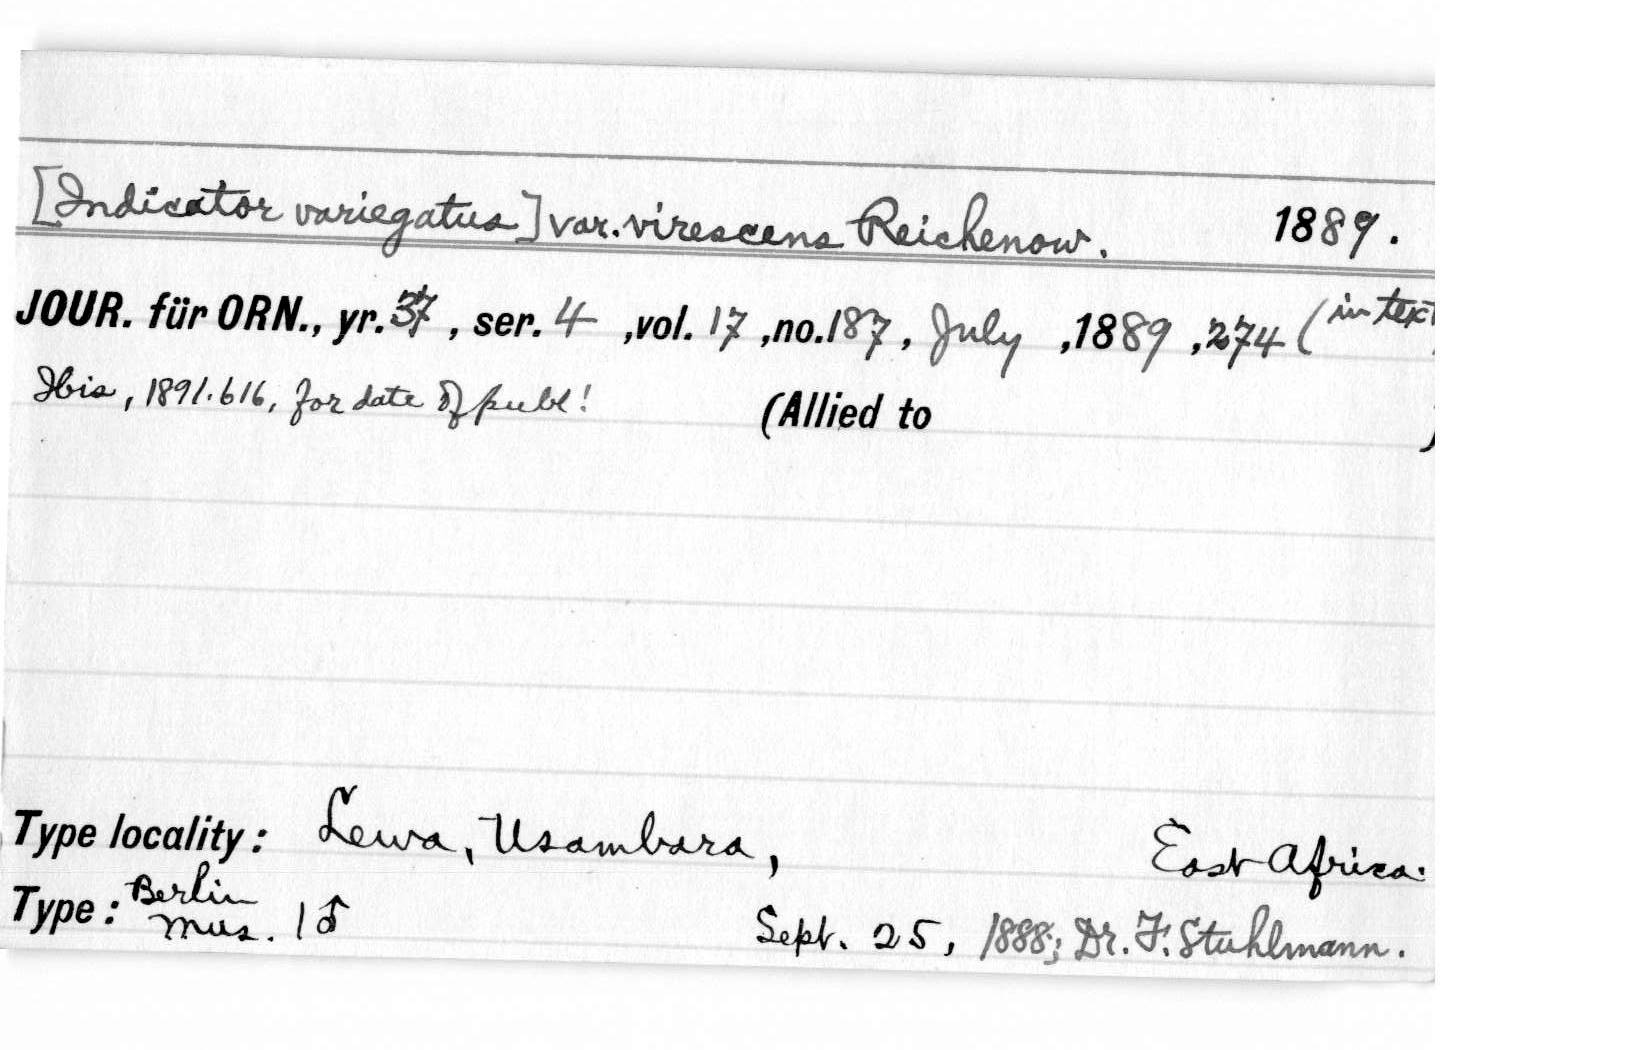 [Indicator variegatus] var. virescens Reichenow. 1889.
JOUR. für ORN., yr. 37, ser. 4, vol. 17, no. 187, July, 1889, 274 (in text
Ibis, 1891. 616, for date of publ! (Allied to )
Type locality: Lewa, Usambara, East Africa.
Type: Berlin Mus. 1♂ Sept. 25, 1888; Dr. F. Stuhlmann.